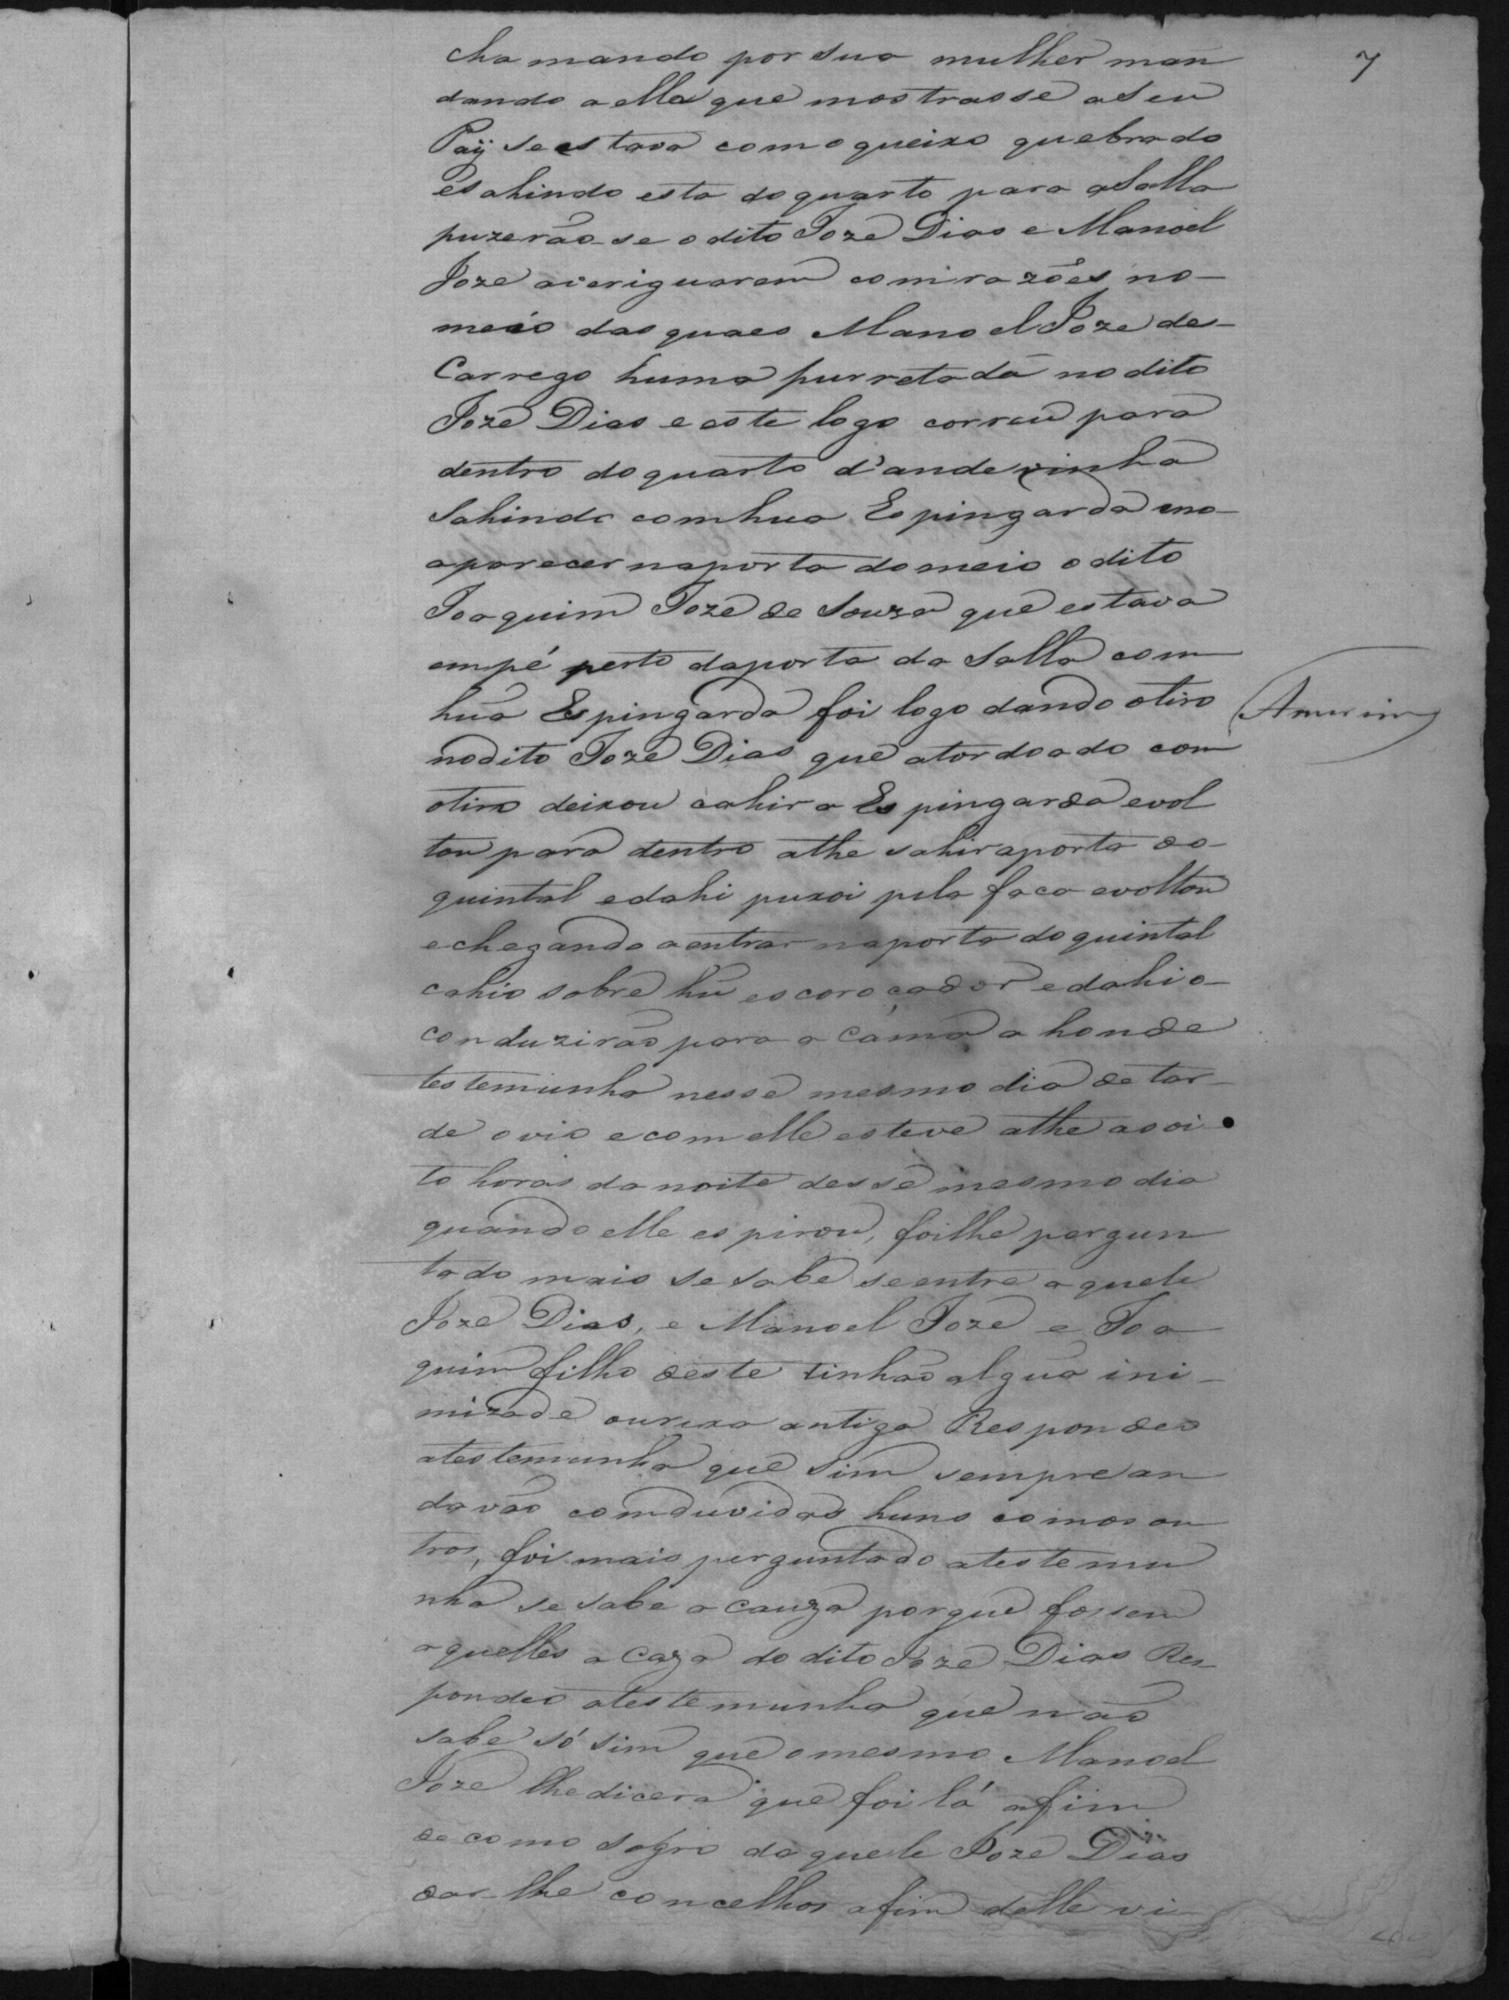 7
chamando por sua mulher man
dando a ella que mostrasse a Seu
Paÿ se estava com o queixo quebrado
e sahindo esta do quarto para a Salla
puzerão-se o dito Joze Dias e Manoel
Joze averiguarem com razões, no-
meio das quaes Manoel Joze des-
Carrego huma purretada no dito
Joze Dias e este logo correu para
dentro do quarto d'ande vinha
Sahindo com hua Espingarda e no-
aparecer na porta do meio o dito
Joaquim Joze de Souza que estava
em pé perto da porta da Salla com
huã Espingarda foi logo dando o tiro
no dito Joze Dias que atordoado com
o tiro deixou cahir a Espingarda e vol
tou para dentro athe sahir a porta do-
quintal e dahi puxoi pela faca e voltou
e chegando a entrar na porta do quintal
cahio sobre hũ escoroçador e dahi o-
conduzirão para a Cama a honde
testemunha nesse mesmo dia de tar-
de o vio e com elle esteve athe as oi-
to horas da noite desse mesmo dia
quando elle espirou, foilhe pergun
tado mais se sabe se entre aquele
Joze Dias, e Manoel Joze e Joa
quim filho deste tinhão algua ini-
mizade ou rixa antiga Respondeo
a testemunha que Sim sempre an
davão com duvidas huns com os ou
tros, foi mais perguntado a testemu
nha se sabe a cauza porque fossem
aquelles a Caza do dito Joze Dias Res-
pondeo a testemunha que não
sabe só sim que o mesmo Manoel
Joze lhe dicera que foi lá afim
de como sogro daquele Joze Dias
dar-lhe concelhos afim delle vi-
Amorim